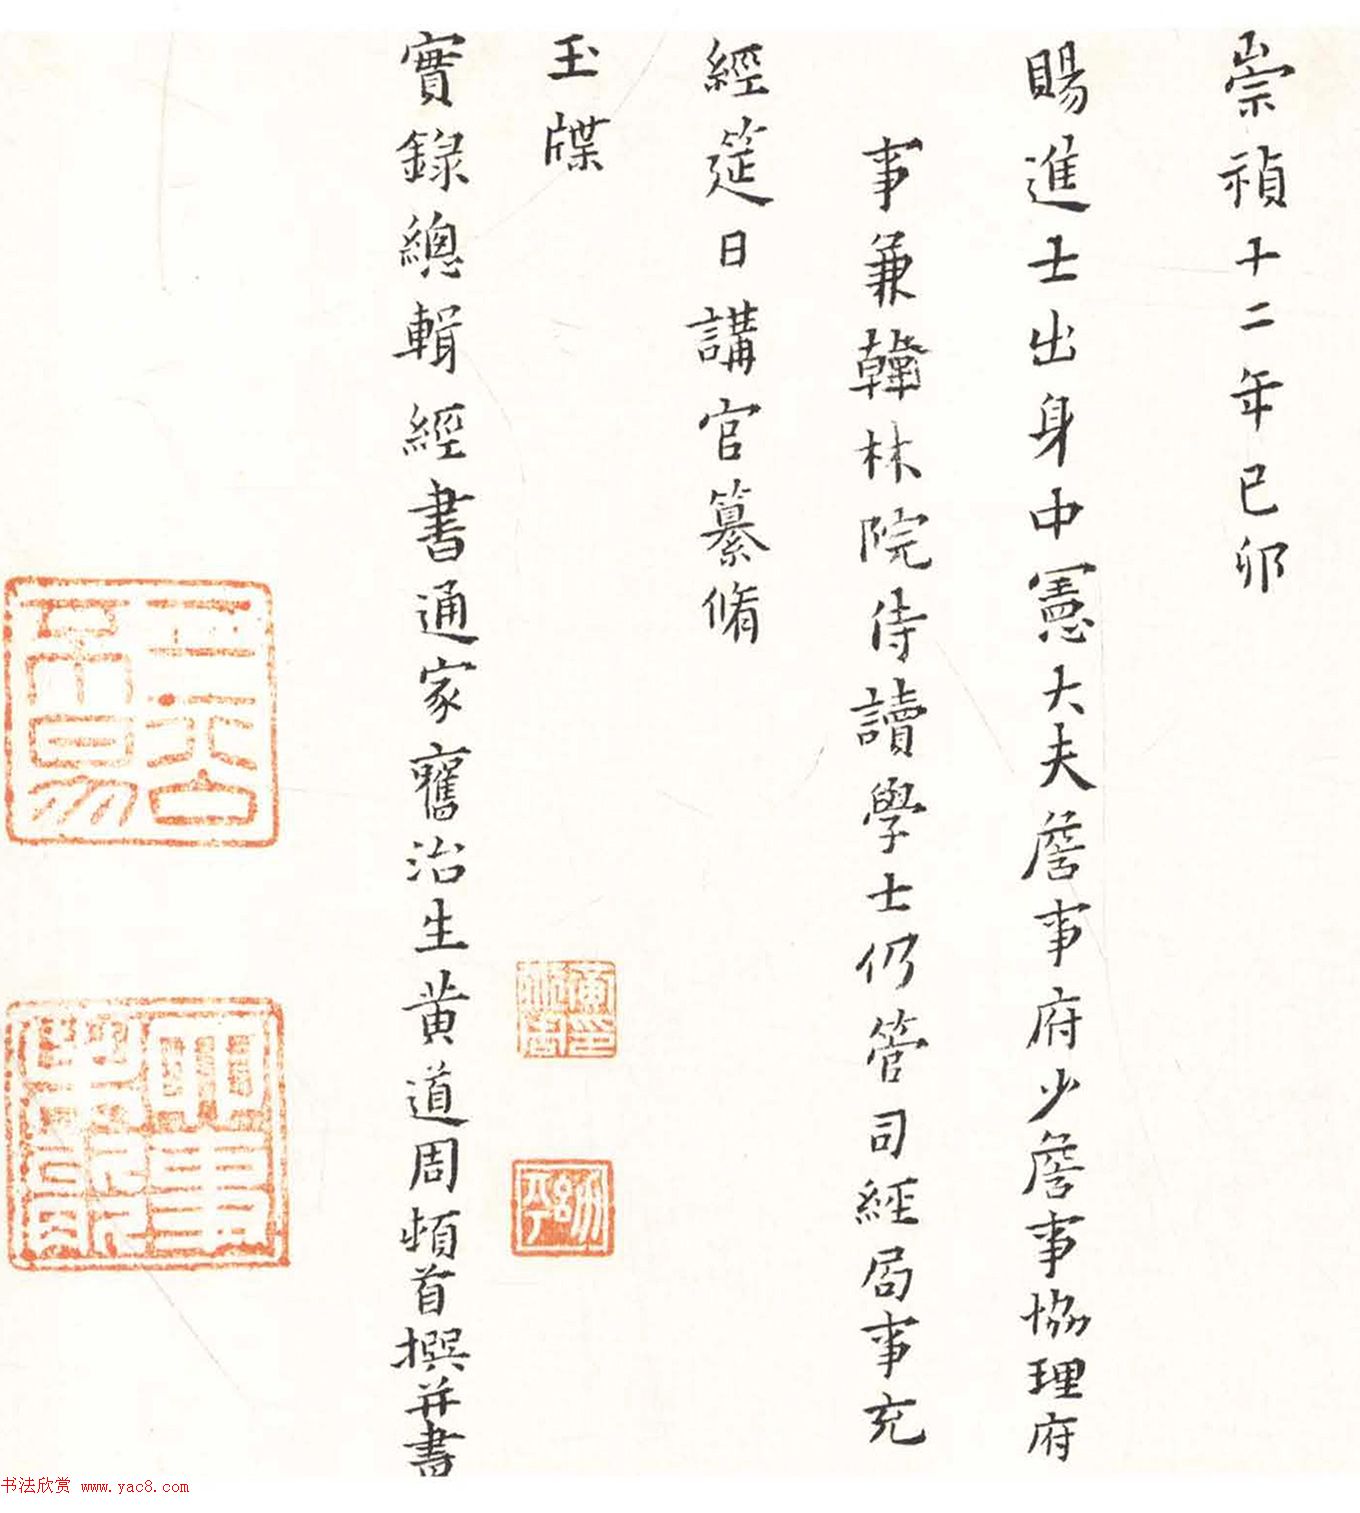 崇禎十二年己卯
賜進士出身中憲大夫詹事府少詹事協理府
事兼翰林院侍讀學士仍管司經局事充
經筵日講官纂脩
玉牒
實錄總輯經書通家舊治生黄道周頓首撰并書
书法欣赏 www.yac8.com